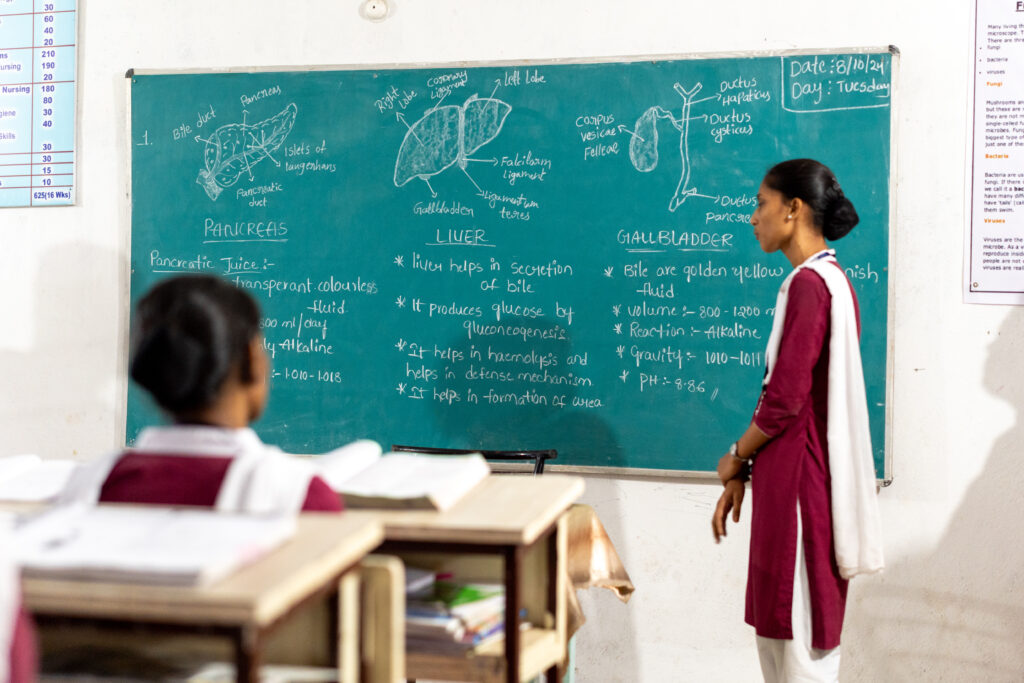 30
60
40
20
210
ursing 190
20
Nursing 180
80
giene 30
40
Skills
30
30
15
10
625(16 Wks)
Date : 8/10/24
Day : Tuesday
1.
Pancreas
Bile duct
Islets of
langenhans
Pancreatic
duct
PANCREAS
Pancreatic Juice :-
transperant colourless
fluid
500 ml/day
Alkaline
:- 1.010-1.018
Coronary
Ligament
Left Lobe
Right
Lobe
Falcifarm
Ligament
Ligamentum
teres
Gallbladden
LIVER
* liver helps in secretion
of bile
* It produces glucose by
gluconeogenesis
* It helps in haemolysis and
helps in defense mechanism
* It helps in formation of urea
Ductus
Hapaticus
Ductus
cysticus
corpus
vesicae
Felleae
Ductus
pancre
GALLBLADDER
* Bile are golden yellow nish
fluid
* volume :- 800-1200 m
* Reaction :- Alkaline
* Gravity :- 1010-1011
* PH :- 8.86 //
Many living th
microscope. T
There are thre
fungi
bacteria
viruses
Fungi
Mushrooms an
but these are
they are not m
single-celled fu
microbes. Fung
biggest type of
just one of the
Bacteria
Bacteria are us
fungi. If there
we call it a bac
have many diff
have 'tails' (cal
them swim.
Viruses
Viruses are the
microbe. As a v
reproduce insid
people are not
viruses are real